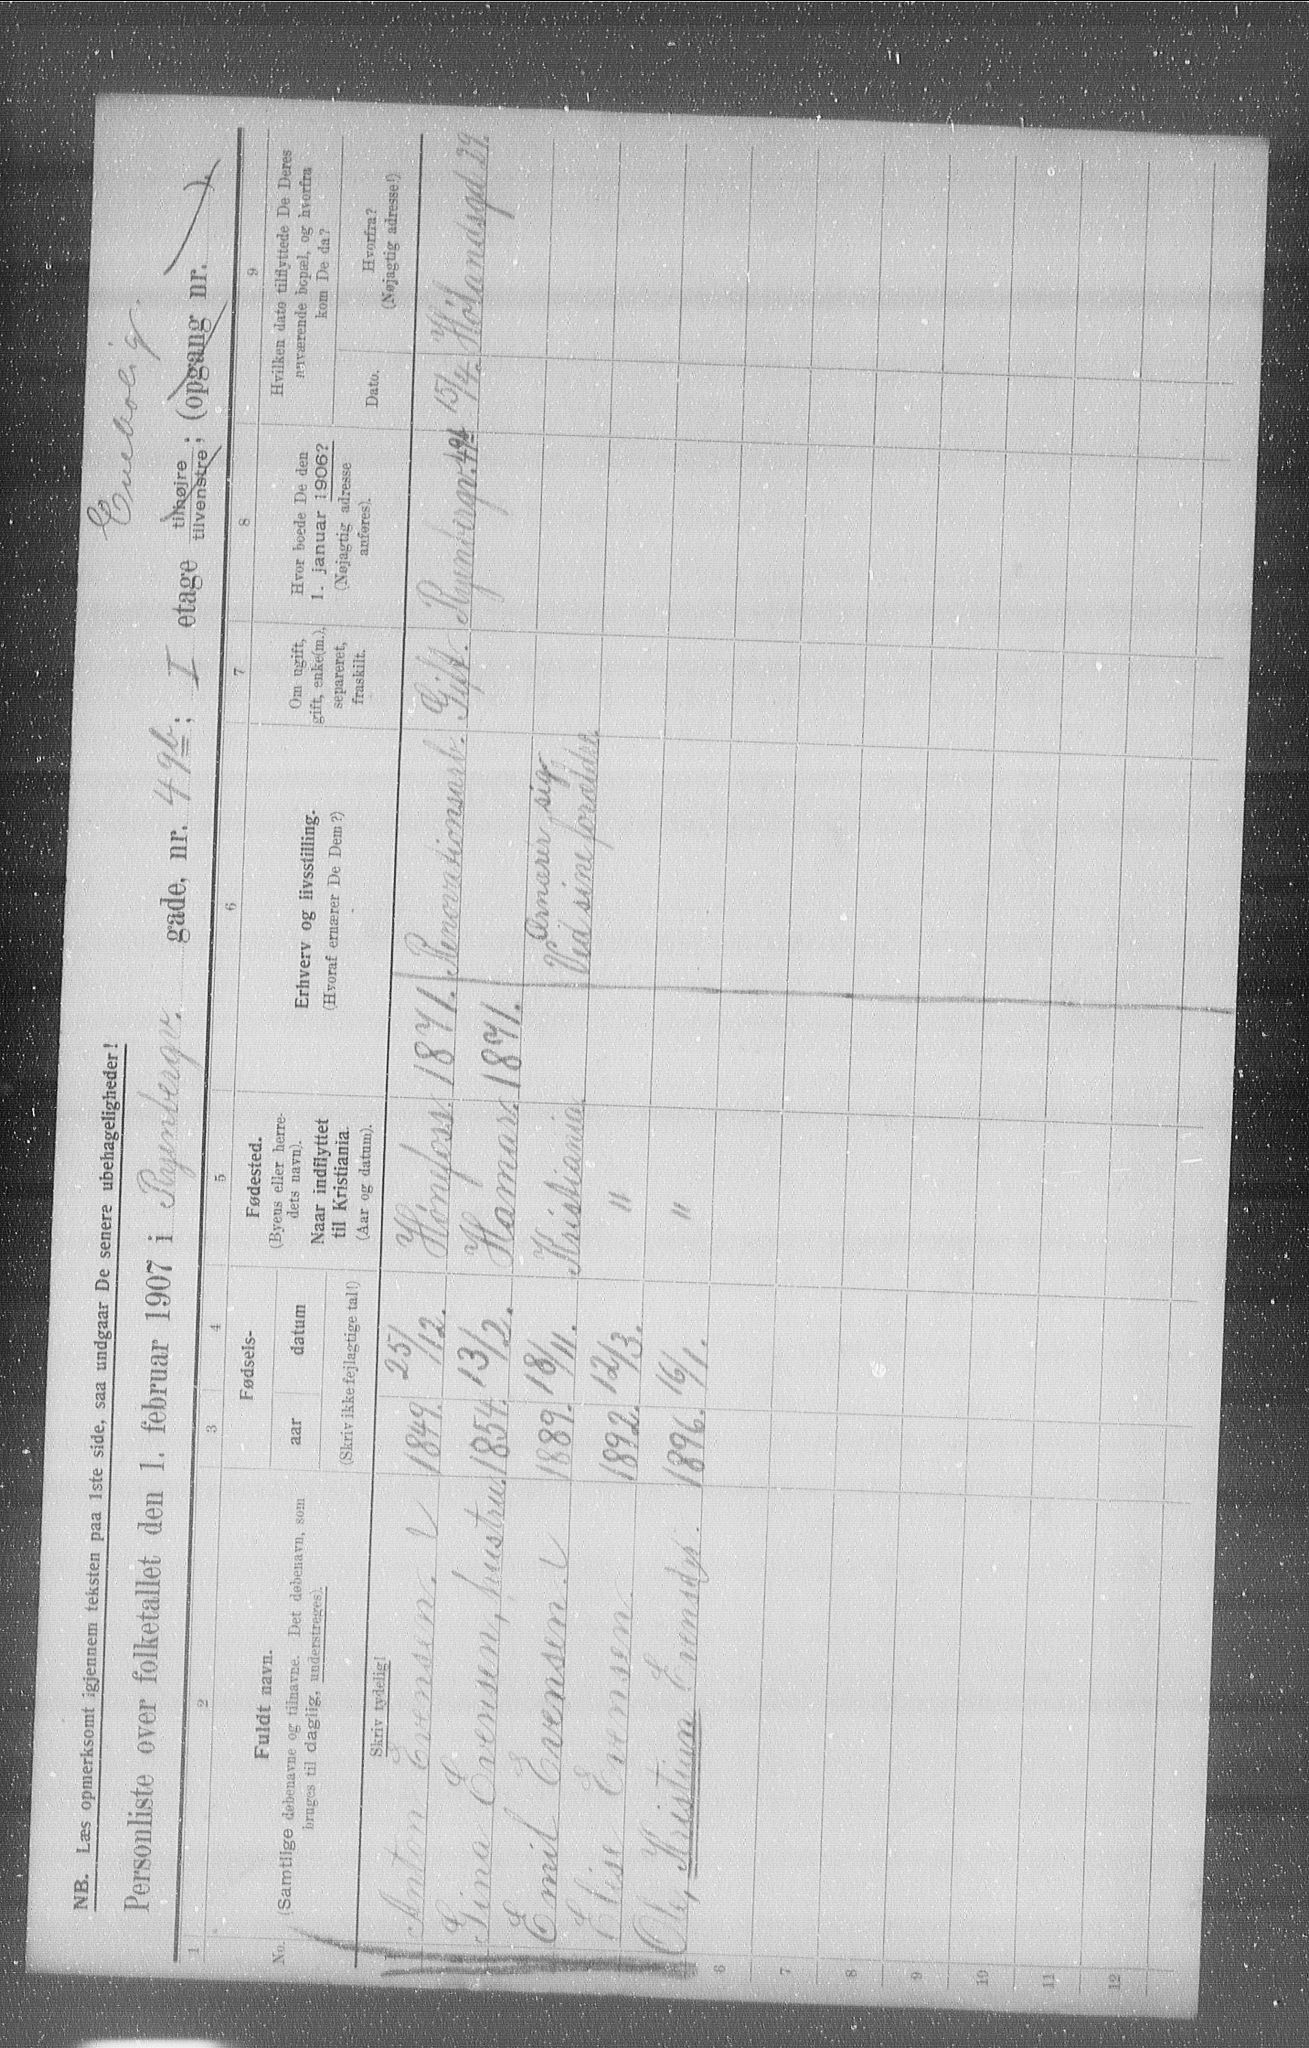 NB. Læs opmerksomt igjennem teksten paa 1ste side, saa undgaar De senere ubehageligheder!
Enebolig.
Personliste over folketallet den 1. februar 1907 i Ryenbergv. gade, nr. 49b; I etage tilhøjre tilvenstre; (opgang nr. ).
1 2 3 4 5 6 7 8 9
No.
Fuldt navn.
(Samtlige døbenavne og tilnavne. Det døbenavn, som
bruges til daglig, understreges).
Skriv tydelig!
Fødsels-
aar datum
(Skriv ikke fejlagtige tal!)
Fødested.
(Byens eller herre-
dets navn).
Naar indflyttet
til Kristiania.
(Aar og datum).
Erhverv og livsstilling.
(Hvoraf ernærer De Dem?)
Om ugift,
gift, enke(m.),
separeret,
fraskilt.
Hvor boede De den
1. januar 1906?
(Nøjagtig adresse
anføres).
Hvilken dato tilflyttede De Deres
nuværende bopæl, og hvorfra
kom De da?
Dato.
Hvorfra?
(Nøjagtig adresse!)
Anton Evensen. 1849. 25/12. Hönefoss. 1871. Renovationsarb. Gift. Ryenbergv. 49b 15/4. Hölandsgd 29.
Gina Evensen, hustru. 1854. 13/2. Hamar. 1871.
Emil Evensen. 1889. 18/11. Kristiania. Ernærer sig
Ved sine forældre.
Elise Evensen. 1892. 12/3. "
Ole, Kristian Evensen. 1896. 16/1. "
6
7
8
9
10
11
12